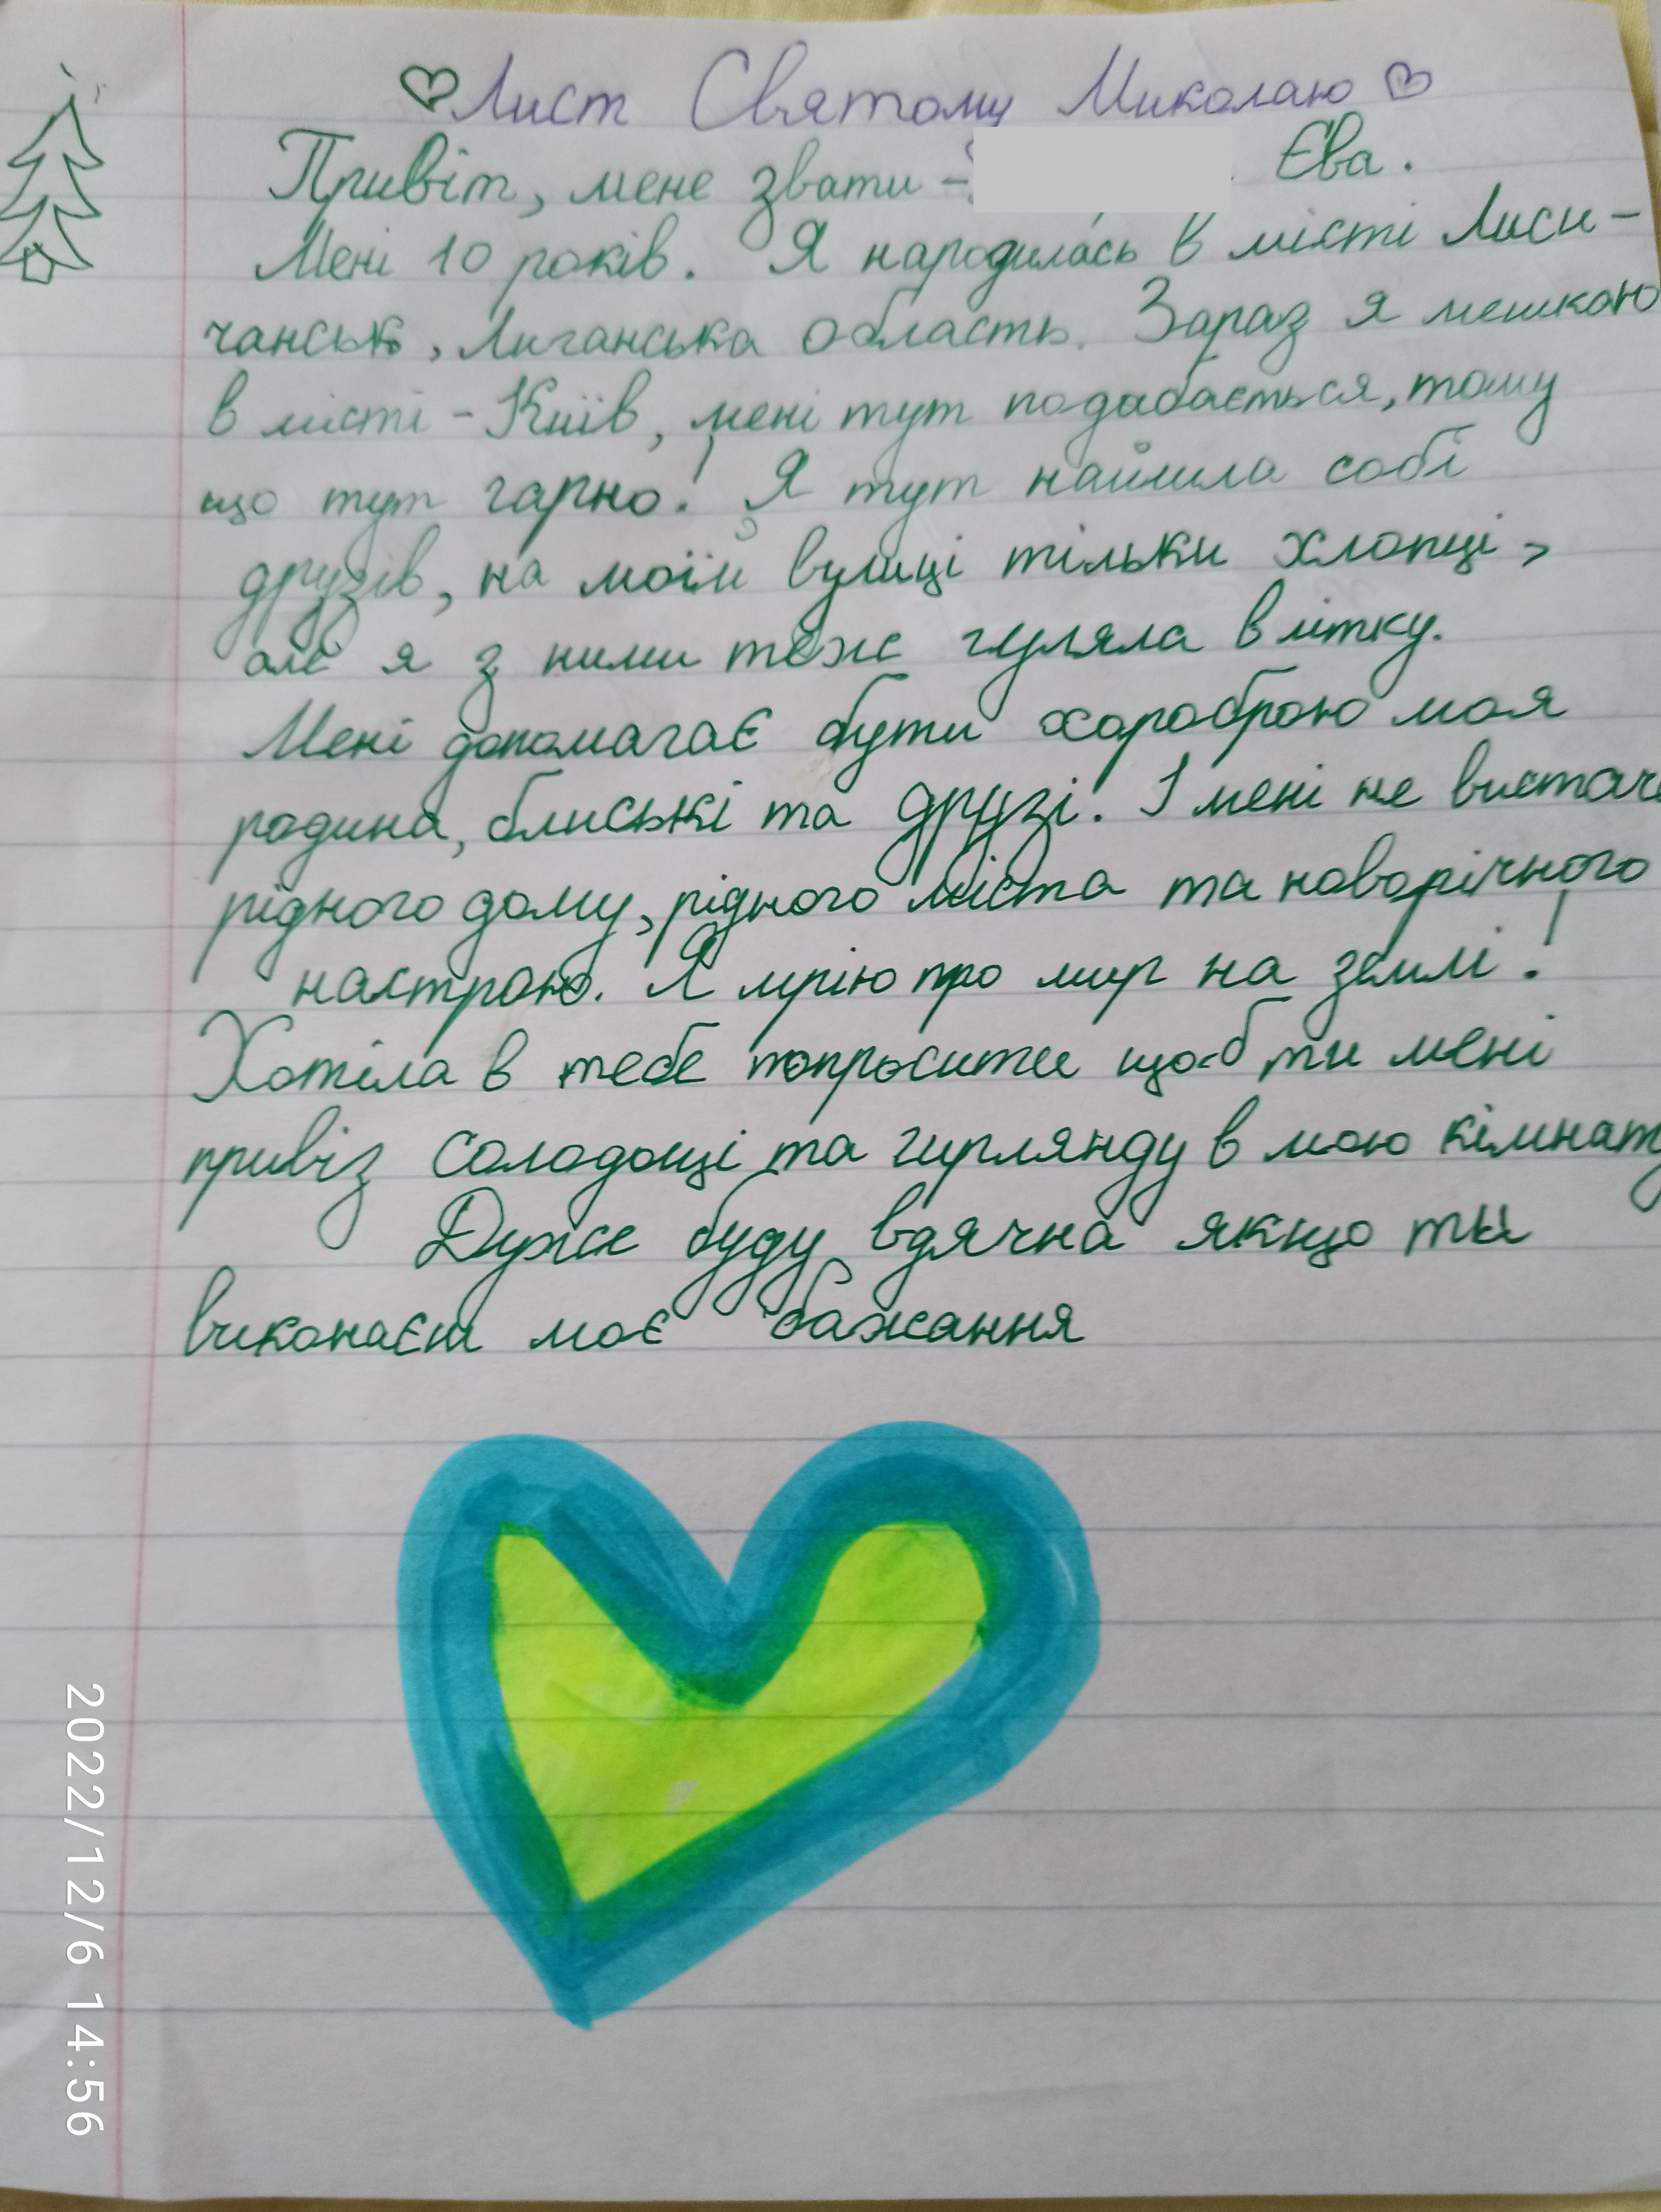 Лист Святому Миколаю
Привіт, мене звати - Єва.
Мені 10 років. Я народилась в місті Лиси-
чанськ, Луганська область. Зараз я мешкаю
в місті - Київ, мені тут подобається, тому
що тут гарно! Я тут найшла собі
друзів, на моїй вулиці тільки хлопці,
але я з ними теж гуляла влітку.
Мені допомагає бути хороброю моя
родина, блиські та друзі. І мені не вистача
рідного дому, рідного міста та новорічного
настрою. Я мрію про мир на землі!
Хотіла в тебе попросити щоб ти мені
привіз солодощі та гирлянду в мою кімнату
Дуже буду вдячна якщо ти
виконаєш моє бажання
2022/12/6 14:56